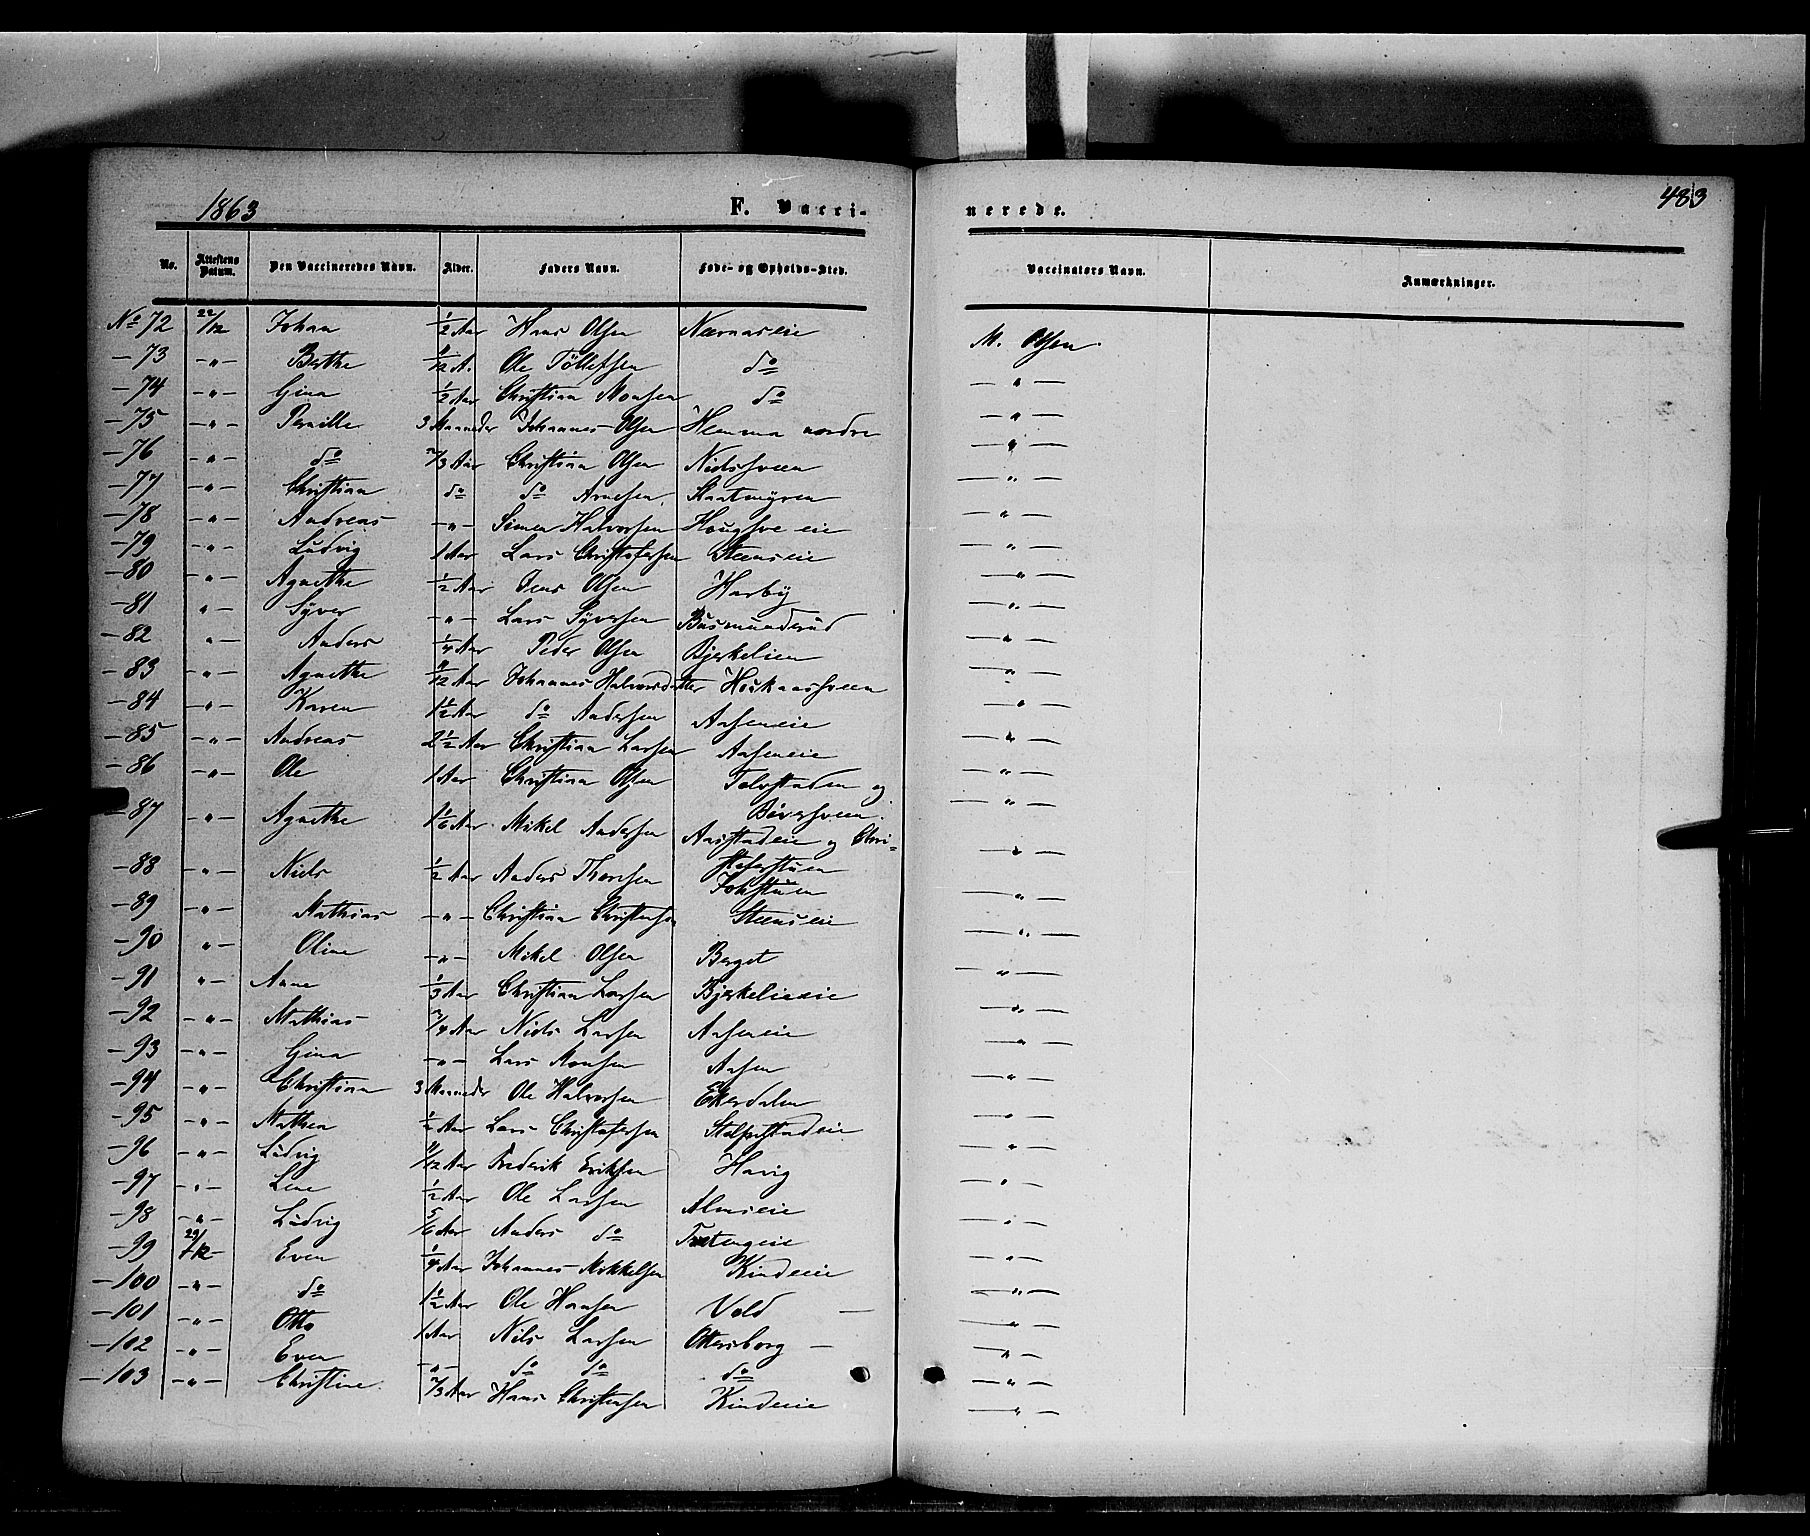 1863 F. Vacci- nerede. 483
No. Attestens Datum. Den Vaccineredes Navn. Alder. Faders Navn. Føde- og Opholds-Sted. Vaccinators Navn. Anmærkninger.
No 72 22/12 Johan 1/2 Aar Hans Olsen Nærnaseie M. Olsen.
-73 -"- Berthe /12 A. Ole Töllefsen do -"-
-74 -"- Gina 1/2 Aar Christian Monsen do -"-
-75 -"- Pernille 3 Maaneder Johannes Olsen Hemma nordre -"-
-76 -"- do 2/3 Aar Christian Olsen Nielssveen -"-
-77 -"- Christian do do Arnesen Skatmyren -"-
-78 -"- Andreas -"- Simen Halvorsen Hougsveeie -"-
-79 -"- Ludvig 1 Aar Lars Christofersen Steenseie -"-
-80 -"- Agnethe 1/2 Aar Jens Olsen Harby -"-
-81 -"- Syver -"- Lars Syversen Basmunderud -"-
-82 -"- Anders 1/4 Aar Peder Olsen Bjerkelien -"-
-83 -"- Agnethe /12 Aar Johannes Halvorsdatter Hoskaassveen -"-
-84 -"- Karen 1 1/2 Aar do Andersen Aaseneie -"-
-85 -"- Andreas 2 1/2 Aar Christian Larsen Aaseneie -"-
-86 -"- Ole 1 Aar Christian Olsen Tolvstaden og -"-
Biversveen.
-87 -"- Agnethe 1 1/6 Aar Mikel Andersen Aasstadeie og Chri- -"-
stoferstuen
-88 -"- Niels 1/2 Aar Anders Thoresen Johstuen -"-
-89 -"- Mathias -"- Christian Christensen Steenseie -"-
-90 -"- Oline -"- Mikel Olsen Berget -"-
-91 -"- Anne 1/3 Aar Christian Larsen Bjerkelieeie -"-
-92 -"- Mathias 3/4 Aar Niels Larsen Aaseneie -"-
-93 -"- Gina -"- Lars Monsen Aasen -"-
-94 -"- Christian 3 Maaneder Ole Halvorsen Ekerdalen -"-
-95 -"- Mathea 1/2 Aar Lars Christofersen Stalpestadeie -"-
-96 -"- Ludvig /12 Aar Frederik Eriksen Havig -"-
-97 -"- Lene 1/2 Aar Ole Larsen Almseie -"-
-98 -"- Ludvig 5/6 Aar Anders do -"-
-99 29/12 Even 1/4 Aar Johannes Mikkelsen Kindeeie -"-
-100 -"- do 1 1/2 Aar Ole Hansen Vold -"-
-101 -"- Otto 1 Aar Nils Larsen Ottersborg -"-
-102 -"- Even -"- do do do -"-
-103 -"- Christine 2/3 Aar Hans Christensen Kindeeie -"-